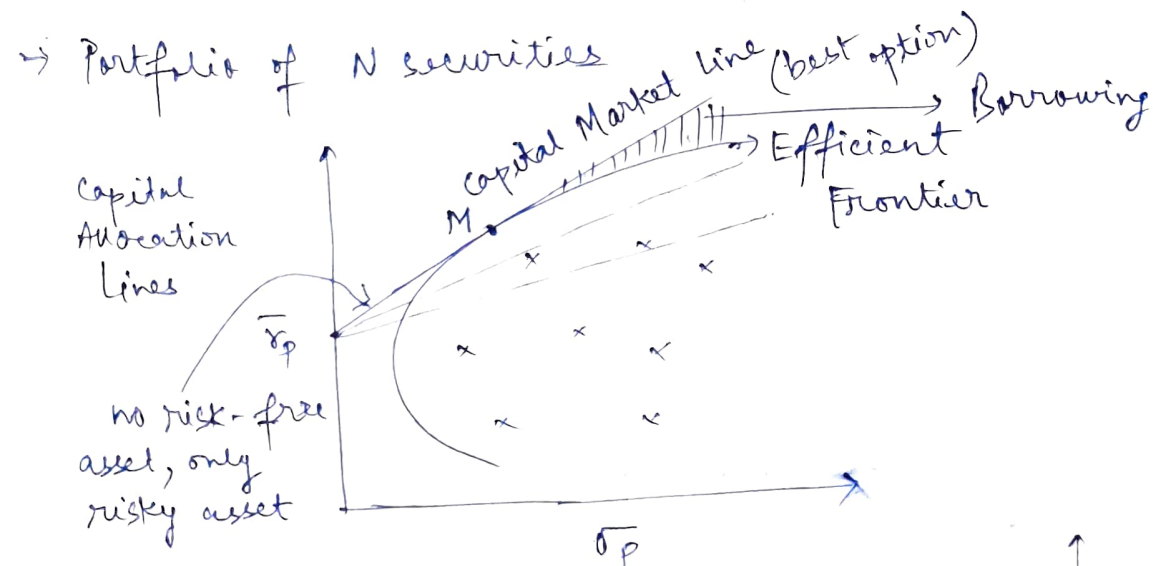 → Portfolio of N securities
Capital Market Line (best option)
Borrowing
Efficient
Frontier
Capital
Allocation
Lines
M
r̅p
no risk-free
asset, only
risky asset
σp